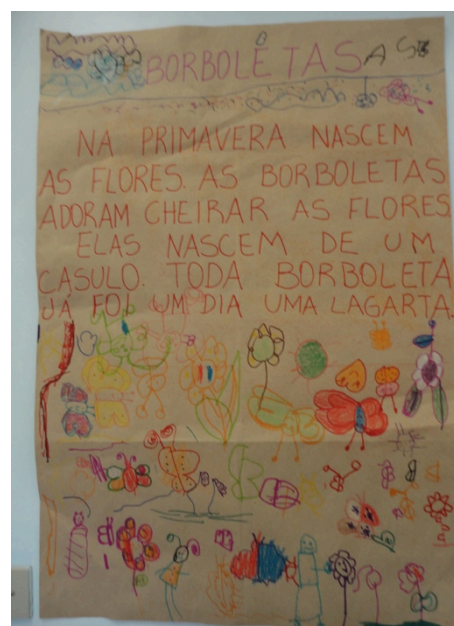 BORBOLETAS
NA PRIMAVERA NASCEM
AS FLORES. AS BORBOLETAS
ADORAM CHEIRAR AS FLORES.
ELAS NASCEM DE UM
CASULO. TODA BORBOLETA
JÁ FOI UM DIA UMA LAGARTA.